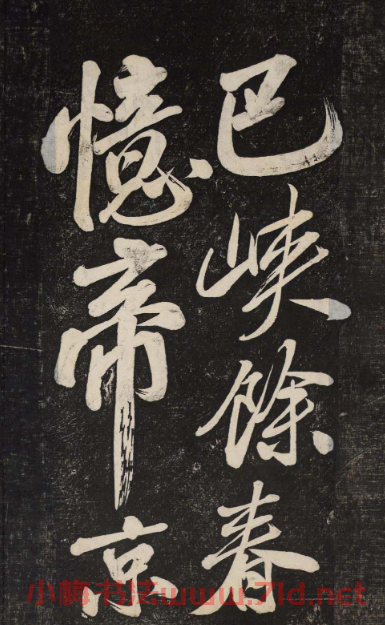 巴峽餘春
憶帝京
小书法www.7ld.net